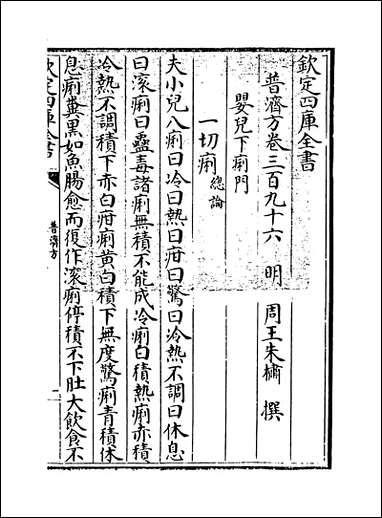 欽定四庫全書
普濟方卷三百九十六　明　周王朱橚　撰
嬰兒下痢門
一切痢總論
夫小兒八痢曰冷曰熱曰疳曰驚曰冷熱不調曰休息
曰瘀痢曰蠱毒諸痢無積不能成冷痢白積熱痢赤積
冷熱不調積下赤白疳痢黃白積下無度驚痢青積休
息痢糞黑如魚腸愈而復作瘀痢停積不下肚大飲食不
欽定四庫全書
普濟方